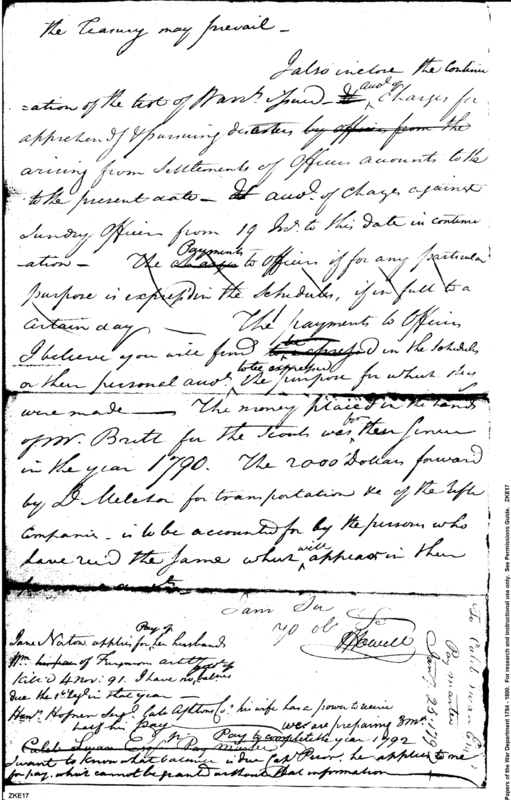 the Treasury may prevail -
I also inclose the continu
=ation of the list of Warrts. issued - & accot. of Charges for
apprehendg. & pursuing deserters by officers from the
arising from Settlements of Officers accounts to the
to the present date - & accot. of charges against
Sundry Officers from 19 to this date in continu
-ation - The charges Payments to Officers if for any particular
purpose is expressed in the Schedules, if in full to a
certain day - The payments to Officers
I believe you will find to be expressed in the Schedules
or their personal accots. to be expressed the purpose for which they
were made - The money placed in the hands
of Mr. Britt for the Scouts was for their Service
in the year 1790. The 2000 Dollars forward
by D. Melcher for transportation &c of the Rifle
Companies - is to be accounted for by the persons who
have rec'd the same which will appear in their
I am Sir
yo ob Se
J Howell
Jane Norton applies for Pay of her husband
Wm. of Ferguson artily
Kill'd 4 Nov. 91. I have no
due the 1st in that year -
Heny. Sergt. Capt Ashtons Co. his wife has a power to receive
his pay
we are preparing 3 mo
Pay to complete the year 1792
Caleb Swan Esqr. Pay Master
I want to know what balance is due Capt Prior, he applies to me
for pay, which cannot be granted without that information
To Caleb Swan Esqr
Pay master
Papers of the War Department 1784 - 1800. For research and instructional use only. See Permissions Guide. ZKE17
ZKE17